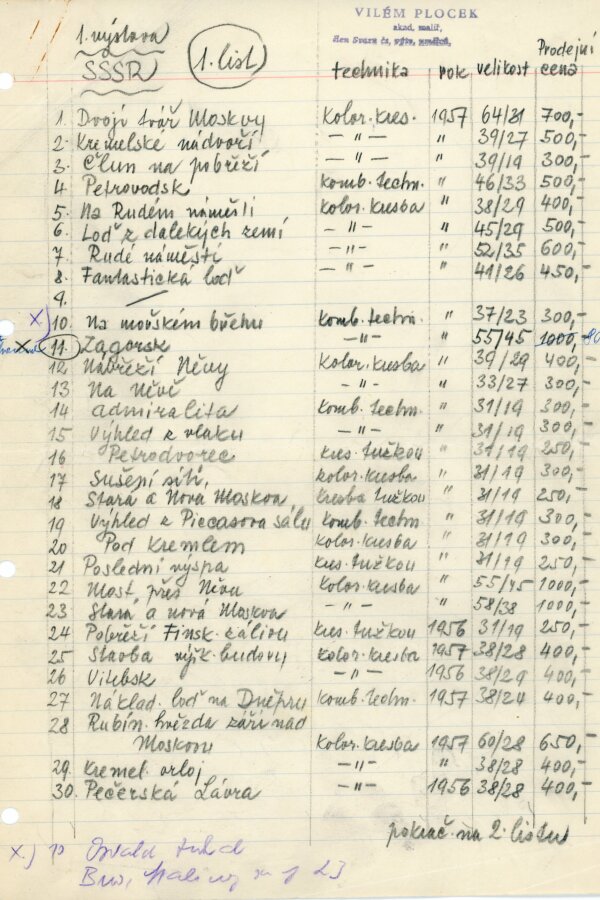 VILÉM PLOCEK
akad. malíř,
člen Svazu čs. výtv. umělců,
1. výstava
SSSR
1. list
technika rok velikost Prodejní cena
1. Dvojí tvář Moskvy kolor. kres. 1957 64/31 700,-
2. Kremelské nádvoří —"— " 39/27 500,-
3. Člun na pobřeží —"— " 39/19 300,-
4. Petrovodsk komb. techn. " 46/33 500,-
5. Na Rudém náměstí kolor. kresba " 38/29 400,-
6. Loď z dalekých zemí —"— " 45/29 500,-
7. Rudé náměstí —"— " 52/35 600,-
8. Fantastická loď —"— " 41/26 450,-
9. —
x) 10. Na mořském břehu komb. techn. " 37/23 300,-
x 11. Zagorsk —"— " 55/45 1000,-
12. Nábřeží Něvy kolor. kresba " 39/29 400,-
13 Na Něvě —"— " 33/27 300,-
14 admiralita komb. techn. " 31/19 300,-
15 Výhled z vlaku —"— " 31/19 300,-
16 Petrodvorec kres. tužkou " 31/19 250,-
17 Sušení sítí, kolor. kresba " 31/19 300,-
18 Stará a Nová Moskva kresba tužkou " 31/19 250,-
19 Výhled z Picassova sálu komb. techn " 31/19 300,-
20 Pod Kremlem kolor. kresba " 31/19 300,-
21 Poslední vyspa kres. tužkou " 31/19 250,-
22 Most přes Něvu kolor. kresba " 55/45 1000,-
23 Stará a nová Moskva —"— " 58/38 1000,-
24 Pobřeží Finsk. zálivu kres. tužkou 1956 31/19 250,-
25 Stavba výšk. budovy kolor. kresba 1957 38/28 400,-
26 Vitebsk —"— 1956 38/29 400,-
27 Náklad. loď na Dněpru komb. techn. 1957 38/24 400,-
28 Rubín. hvězda září nad
Moskvou kolor. kresba 1957 60/28 650,-
29. Kremel. orloj —"— " 38/28 400,-
30. Pečerská Lávra —"— 1956 38/28 400,-
pokrač. na 2. listu
x)
23